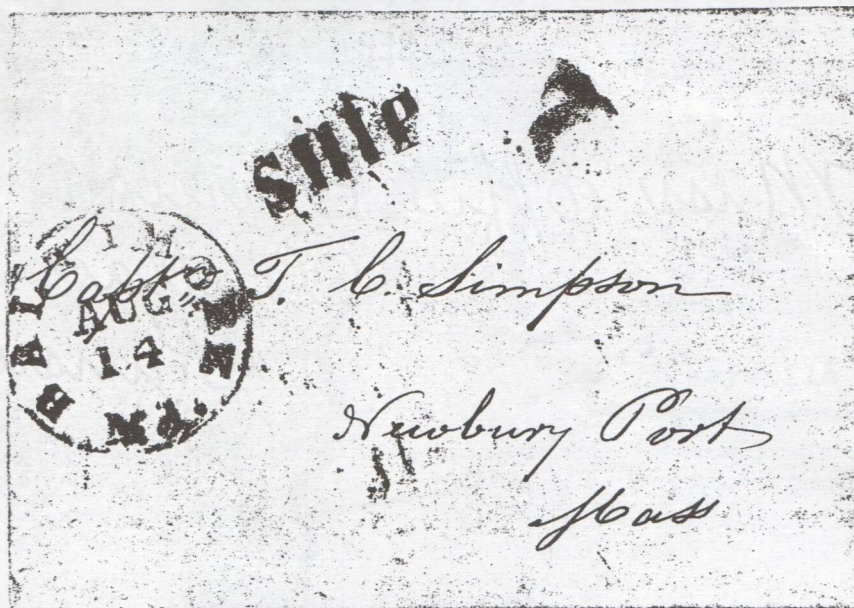 SHIP
BALTIMORE Md.
AUG
14
Capt T. C. Simpson
Newbury Port
Mass